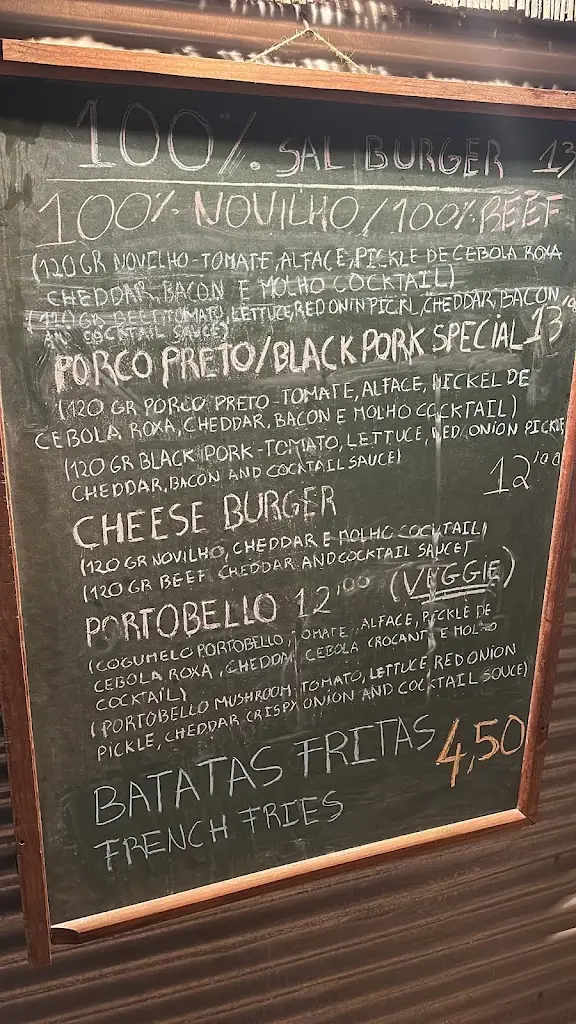 100% SAL BURGER 13
100% NOVILHO / 100% BEEF
(120GR NOVILHO - TOMATE, ALFACE, PICKLE DE CEBOLA ROXA
CHEDDAR, BACON E MOLHO COCKTAIL)
(120GR BEEF, TOMATO, LETTUCE, RED ONION PICKL, CHEDDAR, BACON
AND COCKTAIL SAUCE)
PORCO PRETO/BLACK PORK SPECIAL 13
(120 GR PORCO PRETO - TOMATE, ALFACE, PICKEL DE
CEBOLA ROXA, CHEDDAR, BACON E MOLHO COCKTAIL)
(120 GR BLACK PORK - TOMATO, LETTUCE, RED ONION PICKLE
CHEDDAR, BACON AND COCKTAIL SAUCE)
12'00
CHEESE BURGER
(120 GR NOVILHO, CHEDDAR E MOLHO COCKTAIL)
(120 GR BEEF CHEDDAR AND COCKTAIL SAUCE)
PORTOBELLO 12'00 (VEGGIE)
(COGUMELO PORTOBELLO, TOMATE, ALFACE, PICKLE DE
CEBOLA ROXA, CHEDDAR, CEBOLA CROCANTE E MOLHO
COCKTAIL)
(PORTOBELLO MUSHROOM, TOMATO, LETTUCE RED ONION
PICKLE, CHEDDAR CRISPY ONION AND COCKTAIL SOUCE)
BATATAS FRITAS 4,50
FRENCH FRIES